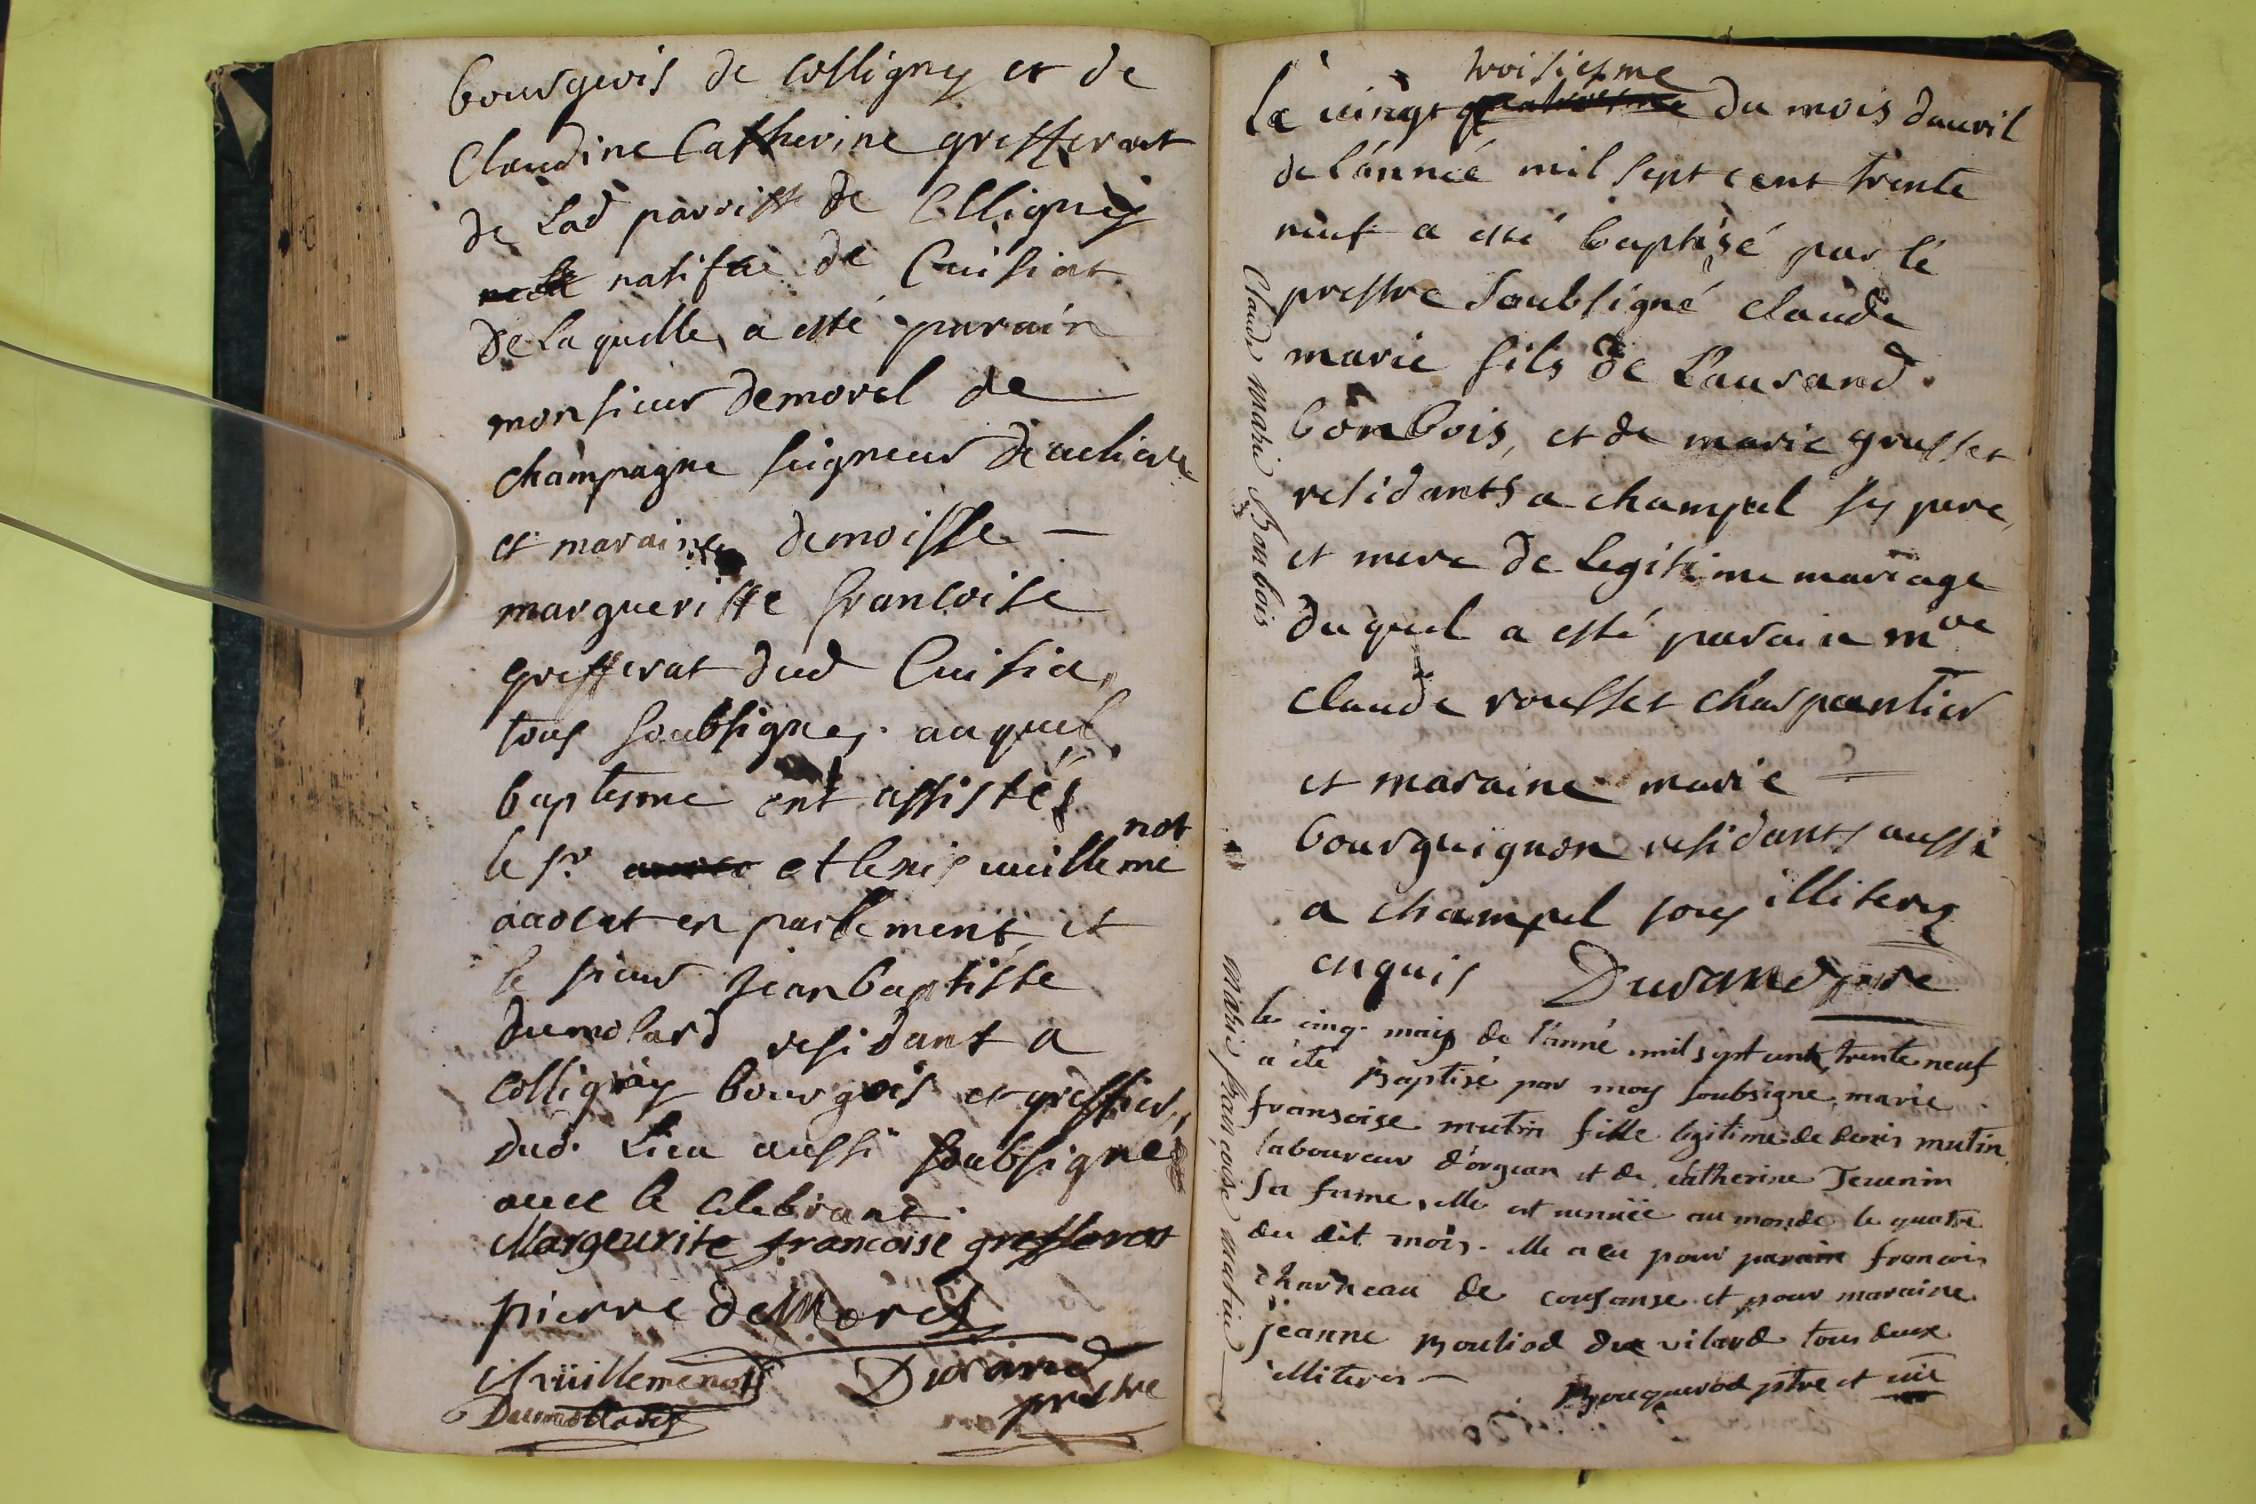 bourgeois de colligny et de
Claudine Catherine grefferat
de Lad parrisse de Colligny
natifue de Cuisiat
De Laquelle a esté parain
monsieur demorel de
champagne seigneur
et maraine demoisse
margueritte francoise
grefferat dud Cuisia,
tous soubsignes. auquel
baptesme ont assistés
le sr et lenis vuillemenot
auocat en parlement, et
le sieur Jean baptiste
dumolard residant a
colligny bourgois et greffier,
dud. Lieu aussi soubsigne
auec le celebrant.
Margeurite francoise grefferat
pierre deMorel
Vüillemenot Durand
prestre
Dumollard
troisiesme
Le vingt quatriesme du mois dauril
de l'année mil sept cent trente
neuf a esté baptisé par lé
prestre soubsigné claude
marie fils de Laurand
bonbois, et de marie grusset
residants a champel sy pere,
et mere de legitime mariage
duquel a esté parain mre
claude rousset charpantier
et maraine marie
bourguignon residants aussi
a champel tous illiteres
enquis Durand ptre
Claude marie Bonbois
le cinq mays de l'année mil sept cent trente neuf
a été Baptisé par moy soubsigne, marie
fransoise mutin fille legitime de denis mutin
laboureur d'orgean et de catherine Jeuenin
sa fame, elle est vennüe au monde le quatre
du dit mois. elle a eu pour parain francois
charneau de cousanse et pour maraine
jeanne Bouliod du vilard tous deux
illiteres
Bouquerod ptre et curé
marie francoise mutin